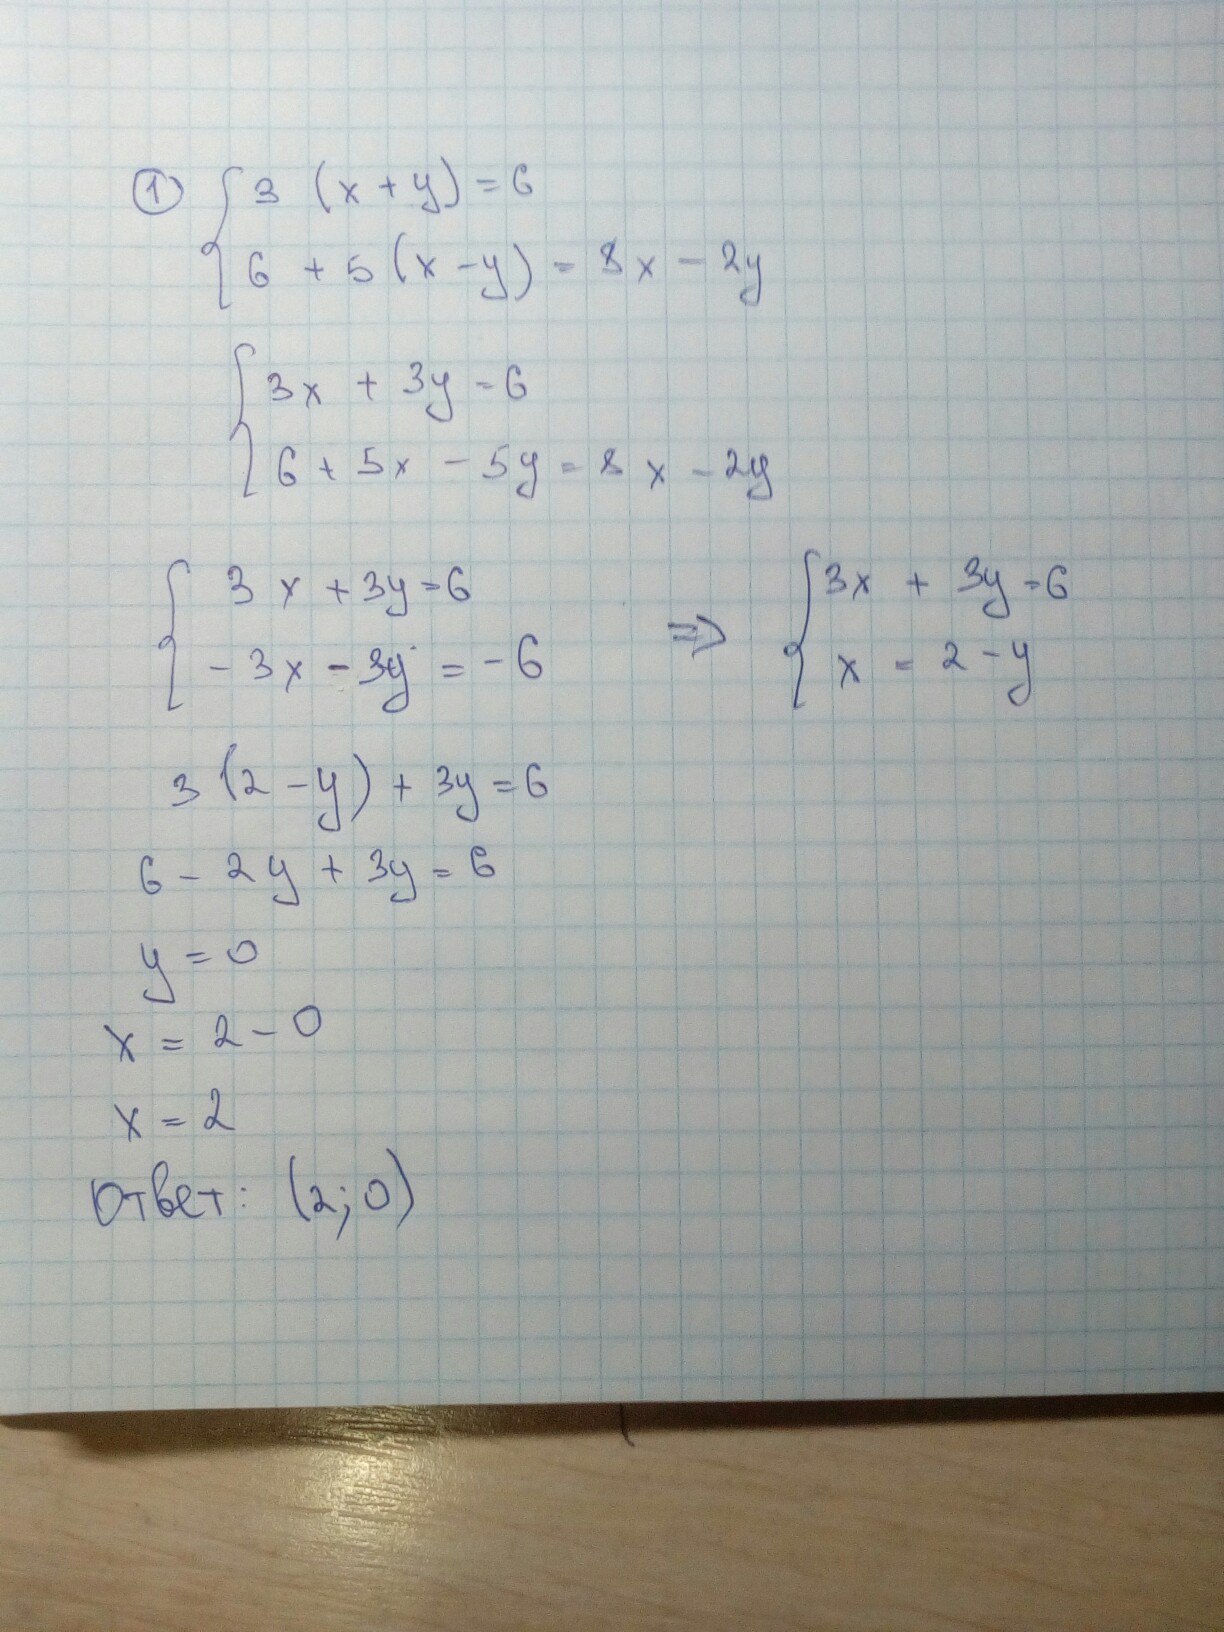 ① { 3 (x + y) = 6
6 + 5 (x - y) = 8x - 2y
{ 3x + 3y = 6
6 + 5x - 5y = 8x - 2y
{ 3x + 3y = 6
- 3x - 3y = - 6
⇒ { 3x + 3y = 6
x = 2 - y
3 (2 - y) + 3y = 6
6 - 2y + 3y = 6
y = 0
x = 2 - 0
x = 2
Ответ: (2; 0)